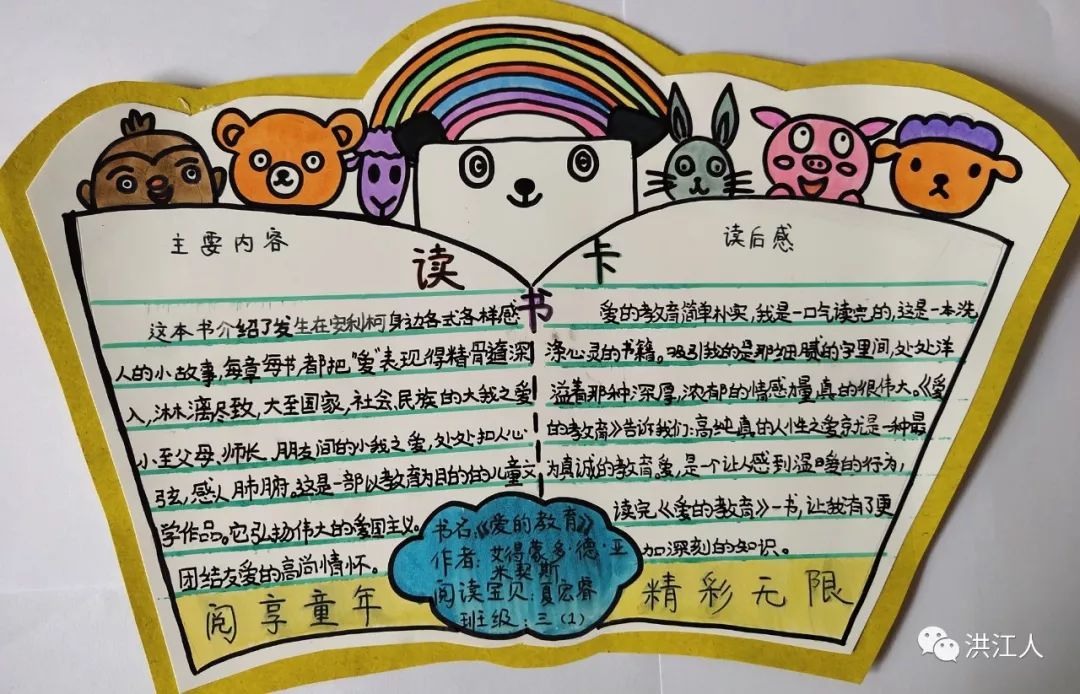 读书卡
主要内容
这本书介绍了发生在安利柯身边各式各样感
人的小故事，每章每节都把“爱”表现得精骨蕴深
入，淋漓尽致，大至国家，社会、民族的大我之爱
小至父母、师长、朋友间的小我之爱，处处扣人心
弦，感人肺腑。这是一部以教育为目的的儿童文
学作品。它引扬伟大的爱国主义。
团结友爱的高尚情怀。
读后感
爱的教育简单朴实，我是一口气读完的，这是一本洗
涤心灵的书籍。吸引我的是那细腻的字里间，处处洋
溢着那种深厚，浓郁的情感力量真的很伟大。《爱
的教育》告诉我们：高纯真的人性之爱就是一种最
为真诚的教育，爱，是个让人感到温暖的行为，
读完《爱的教育》一书，让我有了更
加深刻的知识。
书名：《爱的教育》
作者：艾得蒙多·德·亚
米契斯
阅读宝贝：夏宏睿
班级：三（1）
阅享童年
精彩无限
洪江人